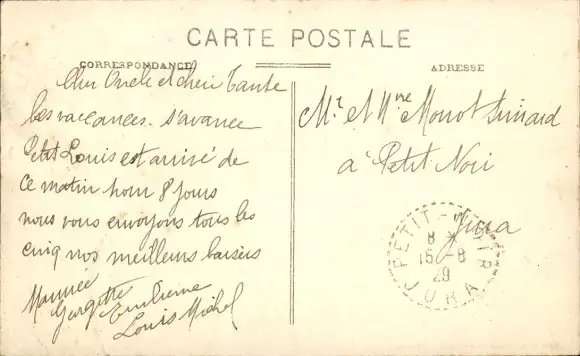 CARTE POSTALE
CORRESPONDANCE
ADRESSE
Cher Oncle et chère Tante
les vaccances s'avance
Petit Louis est arrivé de
ce matin pour 8 jours
nous vous envoyons tous les
cinq nos meilleurs baisers
Maurice
Georgette
Emilienne
Louis Michel
Mr et Mme Monot
à Petit Noir
Jura
PETIT-NOIR
8
15-8
29
JURA